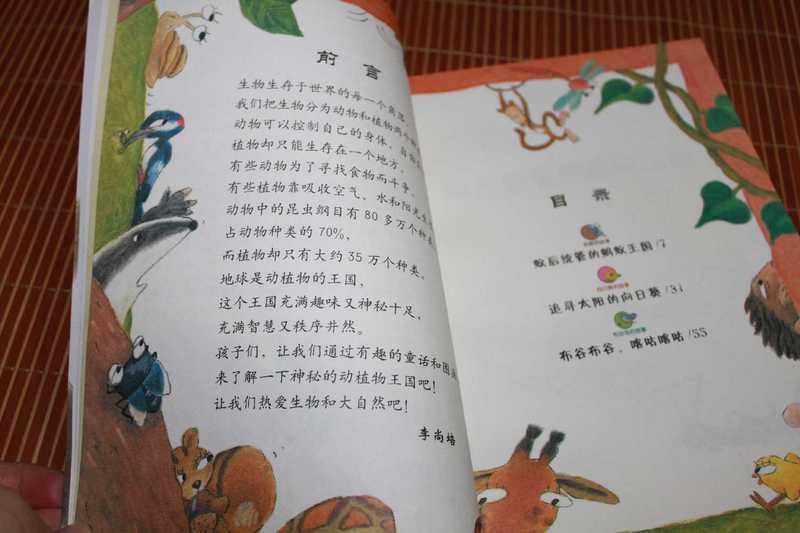 前言
生物生存于世界的每一个角落
我们把生物分为动物和植物两个
动物可以控制自己的身体，自由
植物却只能生存在一个地方，
有些动物为了寻找食物而斗争，
有些植物靠吸收空气、水和阳光生
动物中的昆虫纲目有80多万个种类，
占动物种类的70%，
而植物却只有大约35万个种类。
地球是动植物的王国，
这个王国充满趣味又神秘十足，
充满智慧又秩序井然。
孩子们，让我们通过有趣的童话和图
来了解一下神秘的动植物王国吧！
让我们热爱生物和大自然吧！
李尚培
目录
蚁后统管的蚂蚁王国/7
追寻太阳的向日葵/31
布谷布谷，咯咕咯咕/55